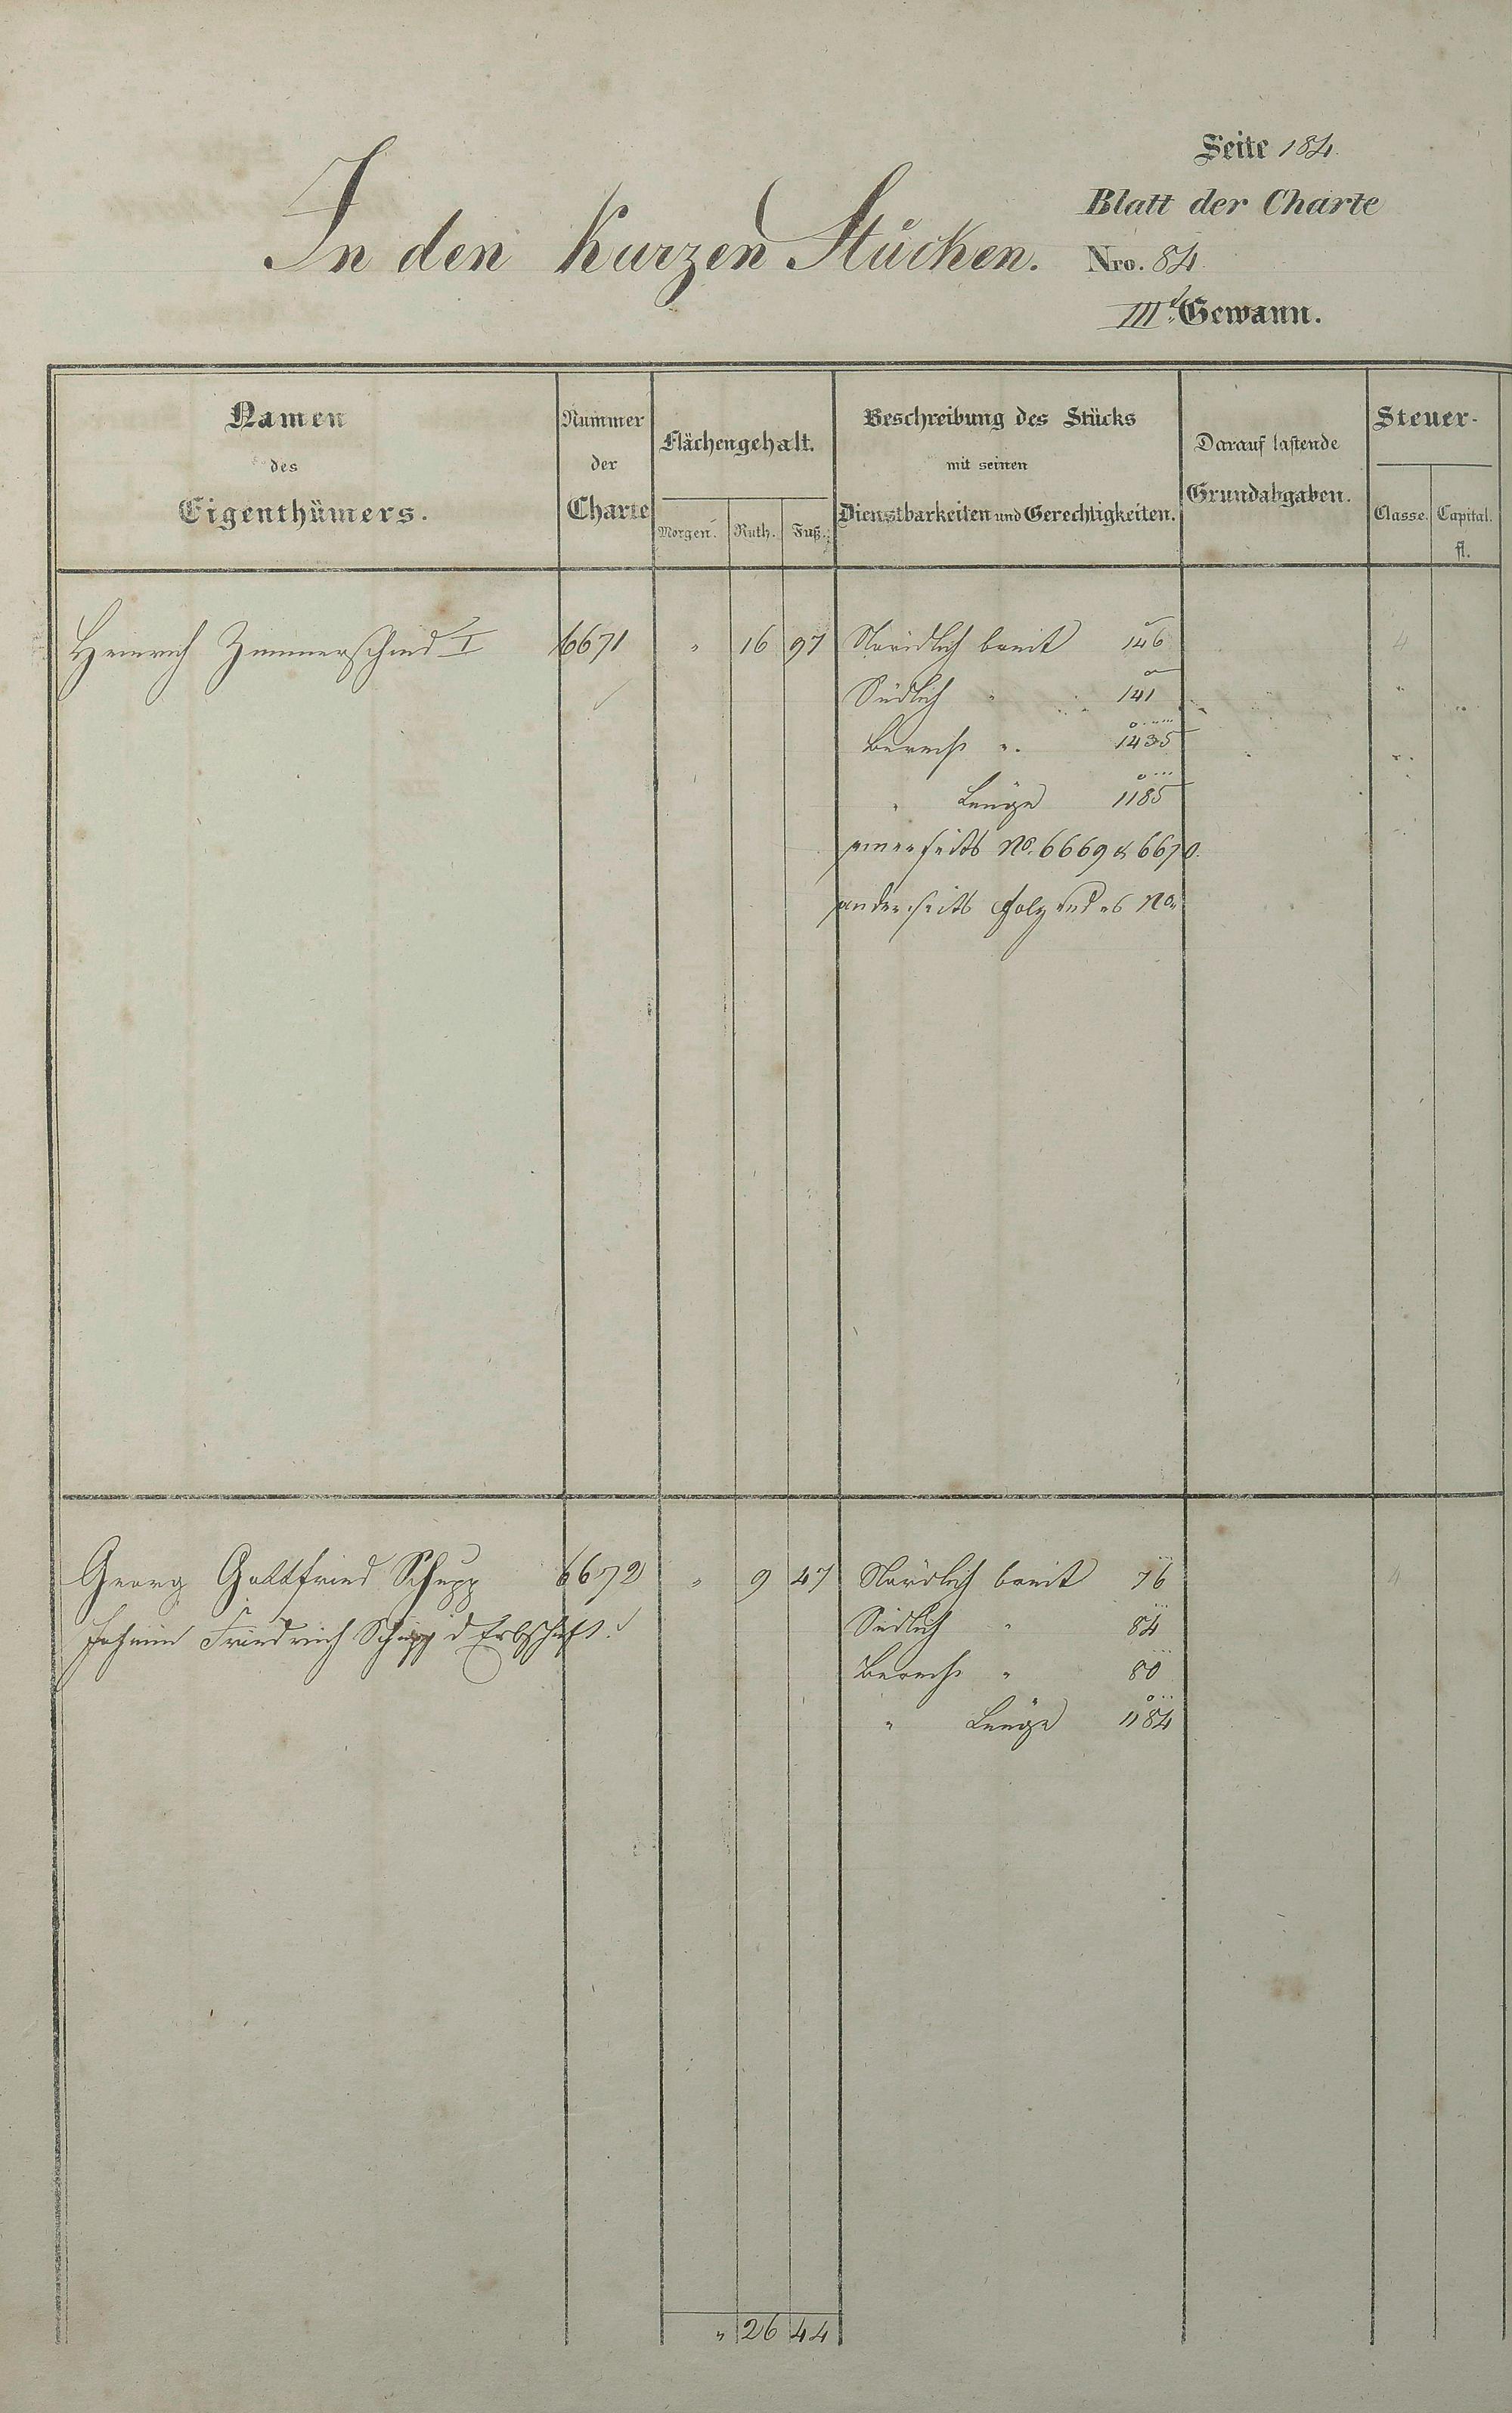 Seite 184.
Blatt der Charte
In den Kurzen Stücken. Nro. 84.
IIIt. Gewann.
Namen des Eigenthümers.
Nummer der Charte
Flächengehalt.
Morgen. Ruth. Fuß.
Beschreibung des Stücks
mit seinen
Dienstbarkeiten und Gerechtigkeiten.
Darauf lastende
Grundabgaben.
Steuer-
Classe. Capital.
fl.
Heinrich Zimmerschied I 6671 " 16 97 Nördlich breit 146 4
Südlich " 141
Berechn " 1435
" Länge 1185
einerseits No. 6669 & 6670.
anderseits folgendes No.
Georg Gottfried Schupp 6672 " 9 47 Nördlich breit 76 4
Johann Friedrich Schupp d Erbschaft. Südlich " 84
Berechn " 80
" Länge 1184
" 26 44